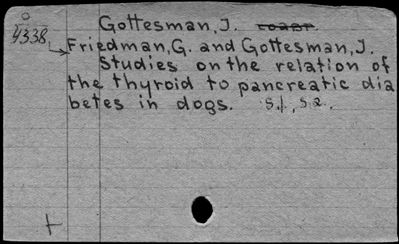 Gottesman, J.
4338
Friedman, G. and Gottesman, J.
Studies on the relation of
the thyroid to pancreatic dia
betes in dogs. S.1, S2.